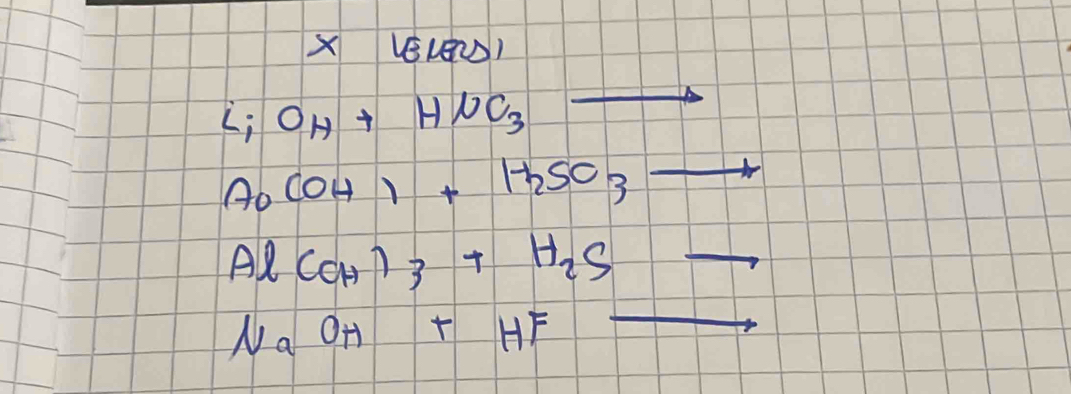 x VENERDI
Li OH + HNO3 →
Ag (OH) + H2SO3 →
Al (OH)3 + H2S →
Na OH + HF →